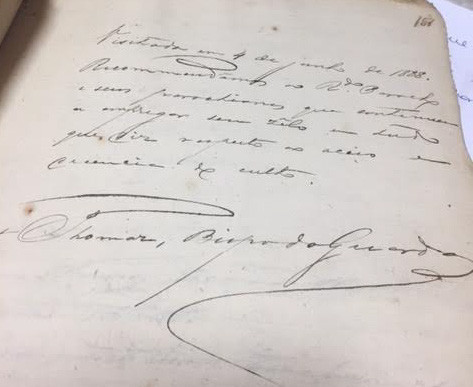 151
Visitada em 4 de junho de 1888.
Recommendamos ao Rdo
e seus parochianos que continuem
a empregar seu zêlo em tudo
que diz respeito ao aceio e
decencia do culto.
+ Thomaz, Bispo da Guarda